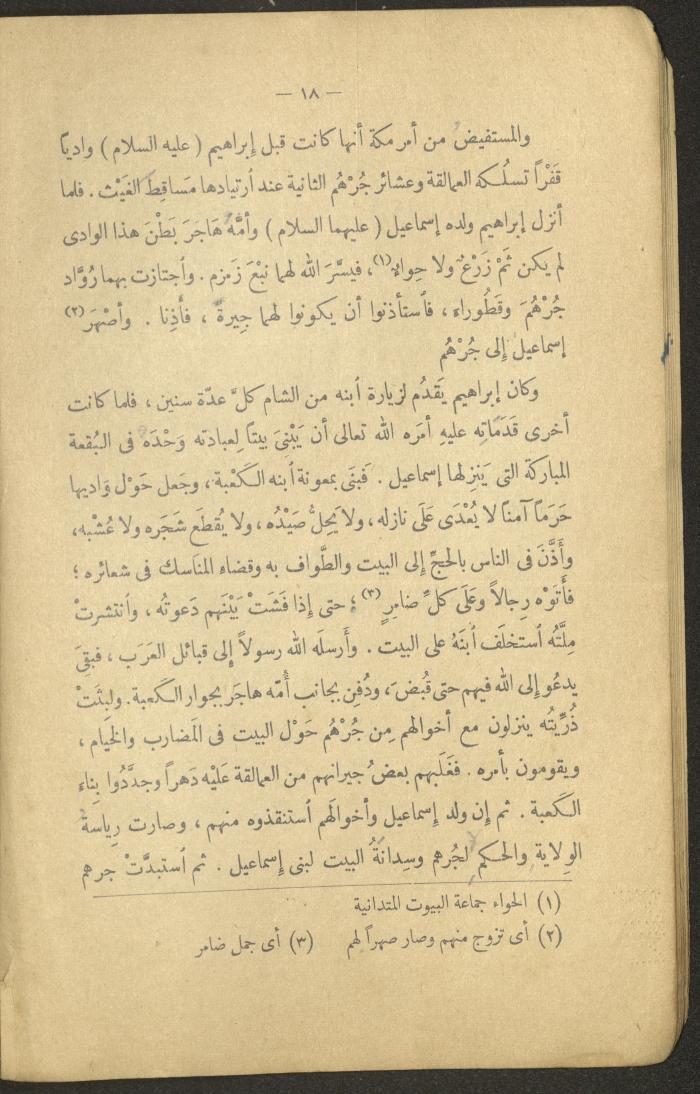 — ١٨ —
والمستفيض من أمر مكة أنها كانت قبل إبراهيم ( عليه السلام ) وادياً
قَفْراً تسلُكه العمالقة وعشائر جُرْهُم الثانية عند ٱرتيادها مَساقِطَ الغَيْث . فلما
أنزل إبراهيم ولده إسماعيل ( عليهما السلام ) وأمَّهُ هَاجَرَ بَطْنَ هذا الوادى
لم يكن ثَمَّ زَرْعٌ ولا حِواءٌ (١) ، فيسَّرَ الله لهما نَبْعَ زَمزم . وٱجتازت بهما رُوَّاد
جُرْهُمَ وقَطُوراء ، فٱستأذنوا أن يكونوا لهما جِيرةً ، فأَذِنا . وأصْهَرَ (٢)
إسماعيل إلى جُرْهُم
وكان إبراهيم يَقدُم لزيارة ٱبنه من الشام كلَّ عدّة سنين ، فلما كانت
أخرى قَدَمَاتِه عليهِ أمَره الله تعالى أن يَبْنِىَ بيتاً لِعبادته وَحْدَه فى البُقعة
المباركة التى يَنزِلها إسماعيل . فبنَى بمعونة ٱبنه الكَعْبة ، وجَعل حَوْل وَاديها
حَرَماً آمناً لا يُعْدَى عَلَى نازله ، ولا يَحِلُّ صَيْدُه ، ولا يُقطَع شَجَره ولا عُشْبه ،
وأَذَّنَ فى الناس بالحجّ إلى البيت والطَّواف به وقضاء المناسك فى شعائره ؛
فأتَوْه رِجالاً وعَلَى كلّ ضامِرٍ (٣) ؛ حتى إذا فَشَتْ بَيْنَهم دَعوتُه ، وٱنتشرتْ
مِلَّتُه ٱستخلَف ٱبنَهُ على البيت . وأَرسلَه الله رسولاً إلى قبائل العَرَب ، فبقِىَ
يدعُو إلى الله فيهم حتى قُبضَ ، ودُفِن بجانب أُمّه هاجَر بجوار الكعبة . ولبِثَتْ
ذُرِّيتُه ينزلون مع أخوالهم مِن جُرْهُم حَوْل البيت فى المَضارب والخِيام ،
ويقومون بأمره . فغَلَبهم بعضُ جيرانهم من العمالقة عَلَيْه دَهراً وجدَّدُوا بِناء
الكَعبة . ثم إن ولد إسماعيل وأخوالَهم ٱستنقذوه منهم ، وصارت رِياسةُ
الوِلاية والحكم لجُرهم وسِدانةُ البيت لبنى إسماعيل . ثم ٱستبدَّتْ جرهم
(١) الحواء جماعة البيوت المتدانية
(٢) أى تزوج منهم وصار صهراً لهم (٣) أى جمل ضامر